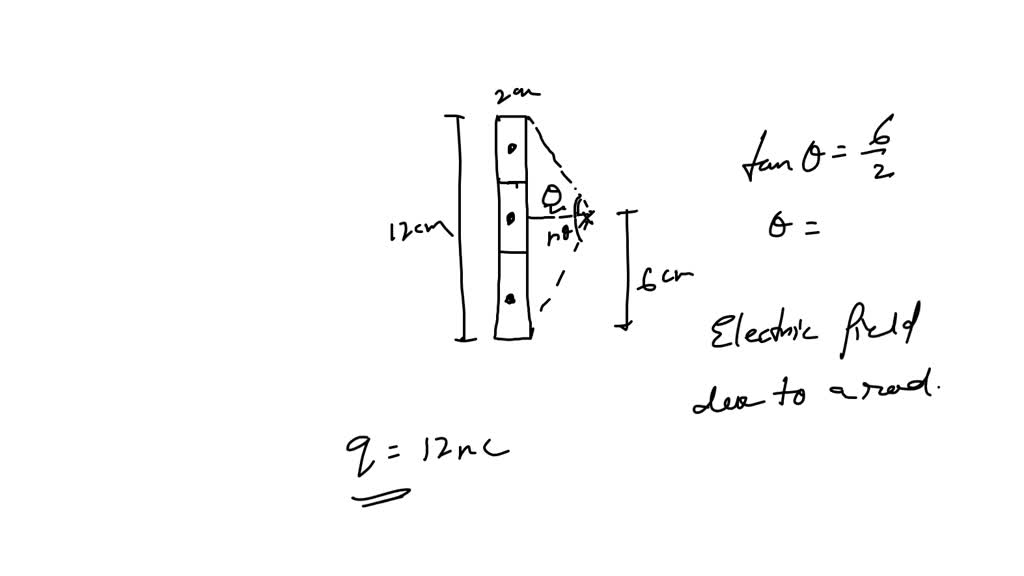 2cm
12cm
θ
θ
6cm
tan θ = 6/2
θ =
Electric field
due to a rod.
q = 12nC